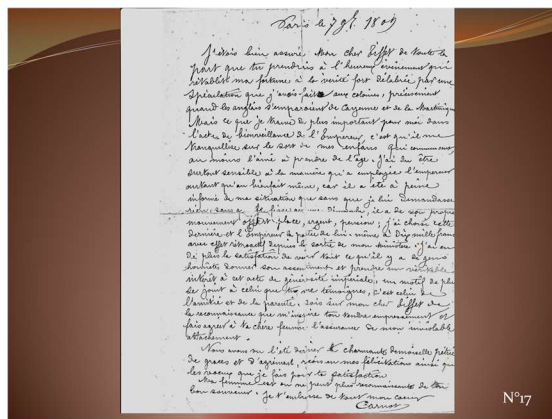 Paris le 7 9bre 1809
J'étois bien assuré mon cher Tiffet de toute la
part que tu prendrois à l'heureux événement qui
rétablit ma fortune à la vérité fort délabrée par une
spéculation que j'avois faite aux colonies, précisément
quand les anglais s'emparoient de Cayenne et de la Martinique
Mais ce que je trouve de plus important pour moi dans
l'acte de bienveillance de l'Empereur, c'est qu'il me
tranquillise sur le sort de mes enfans qui commencent
au moins l'ainé à prendre de l'age. J'ai du être
surtout sensible à la manière qu'a employée l'empereur
autant qu'au bienfait même, car il a été à peine
informé de ma situation que sans que je lui demandasse
rien sans que une Dimanche, il a de son propre
mouvement offert place, argent, pension; j'ai choisi cette
dernière et l'Empereur l'a portée de lui-même à Dix mille francs
avec effet rétroactif depuis la sortie de mon ministère. J'ai eu
de plus la satisfaction de voir tout ce qu'il y a de gens
honnêtes donner son assentiment et prendre un véritable
intérêt à cet acte de générosité impériale; un motif de plus
se joint à celui que tu me témoignes, c'est celui de
l'amitié et de la parenté. sois sur mon cher Tiffet de
la reconnaissance que m'inspire ton tendre empressement et
fais agréer à ta chère femme l'assurance de mon inviolable
attachement.
Nous avons vu l'été dernier ta charmante demoiselle pétrie
de graces et d'agrément, reçois en mes félicitations ainsi que
les voeux que je fais pour ta satisfaction
Ma femme est on ne peut plus reconnaissante de ton
bon souvenir. je t'embrasse de tout mon coeur
Carnot
N°17